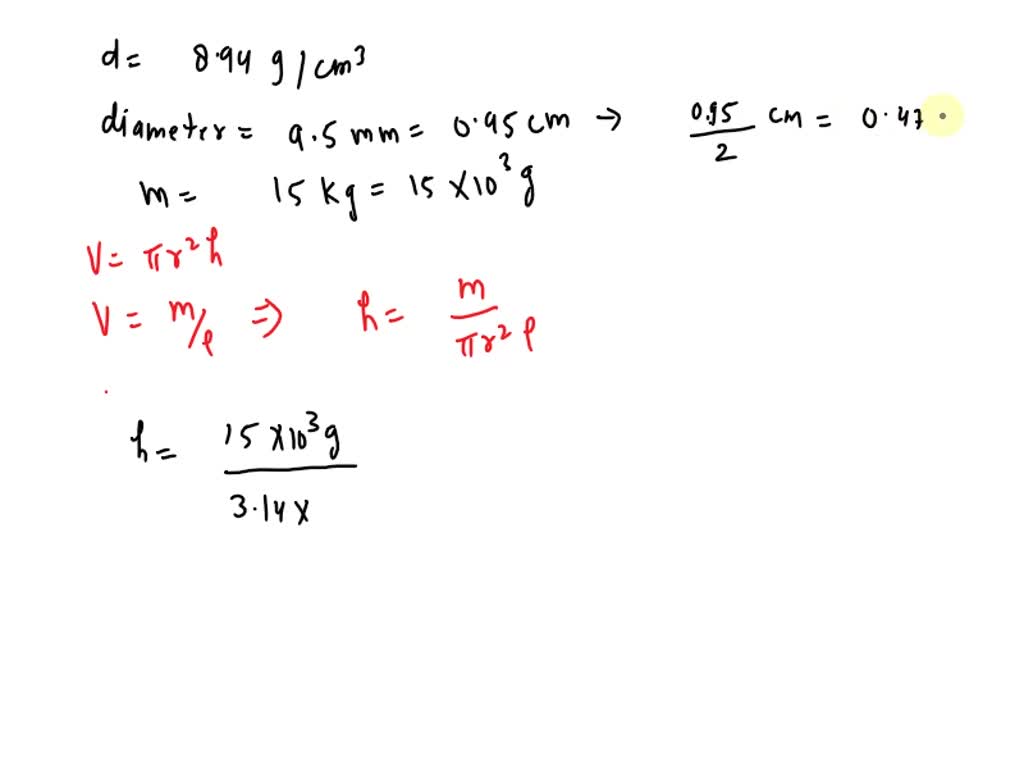 d= 8.94 g/cm³
diameter = 9.5 mm = 0.95 cm → 0.95/2 cm = 0.47
m= 15 kg = 15 X10³ g
V= πr²h
V = m/ρ ⇒ h= m/πr²ρ
h= 15 X10³ g/3.14 X